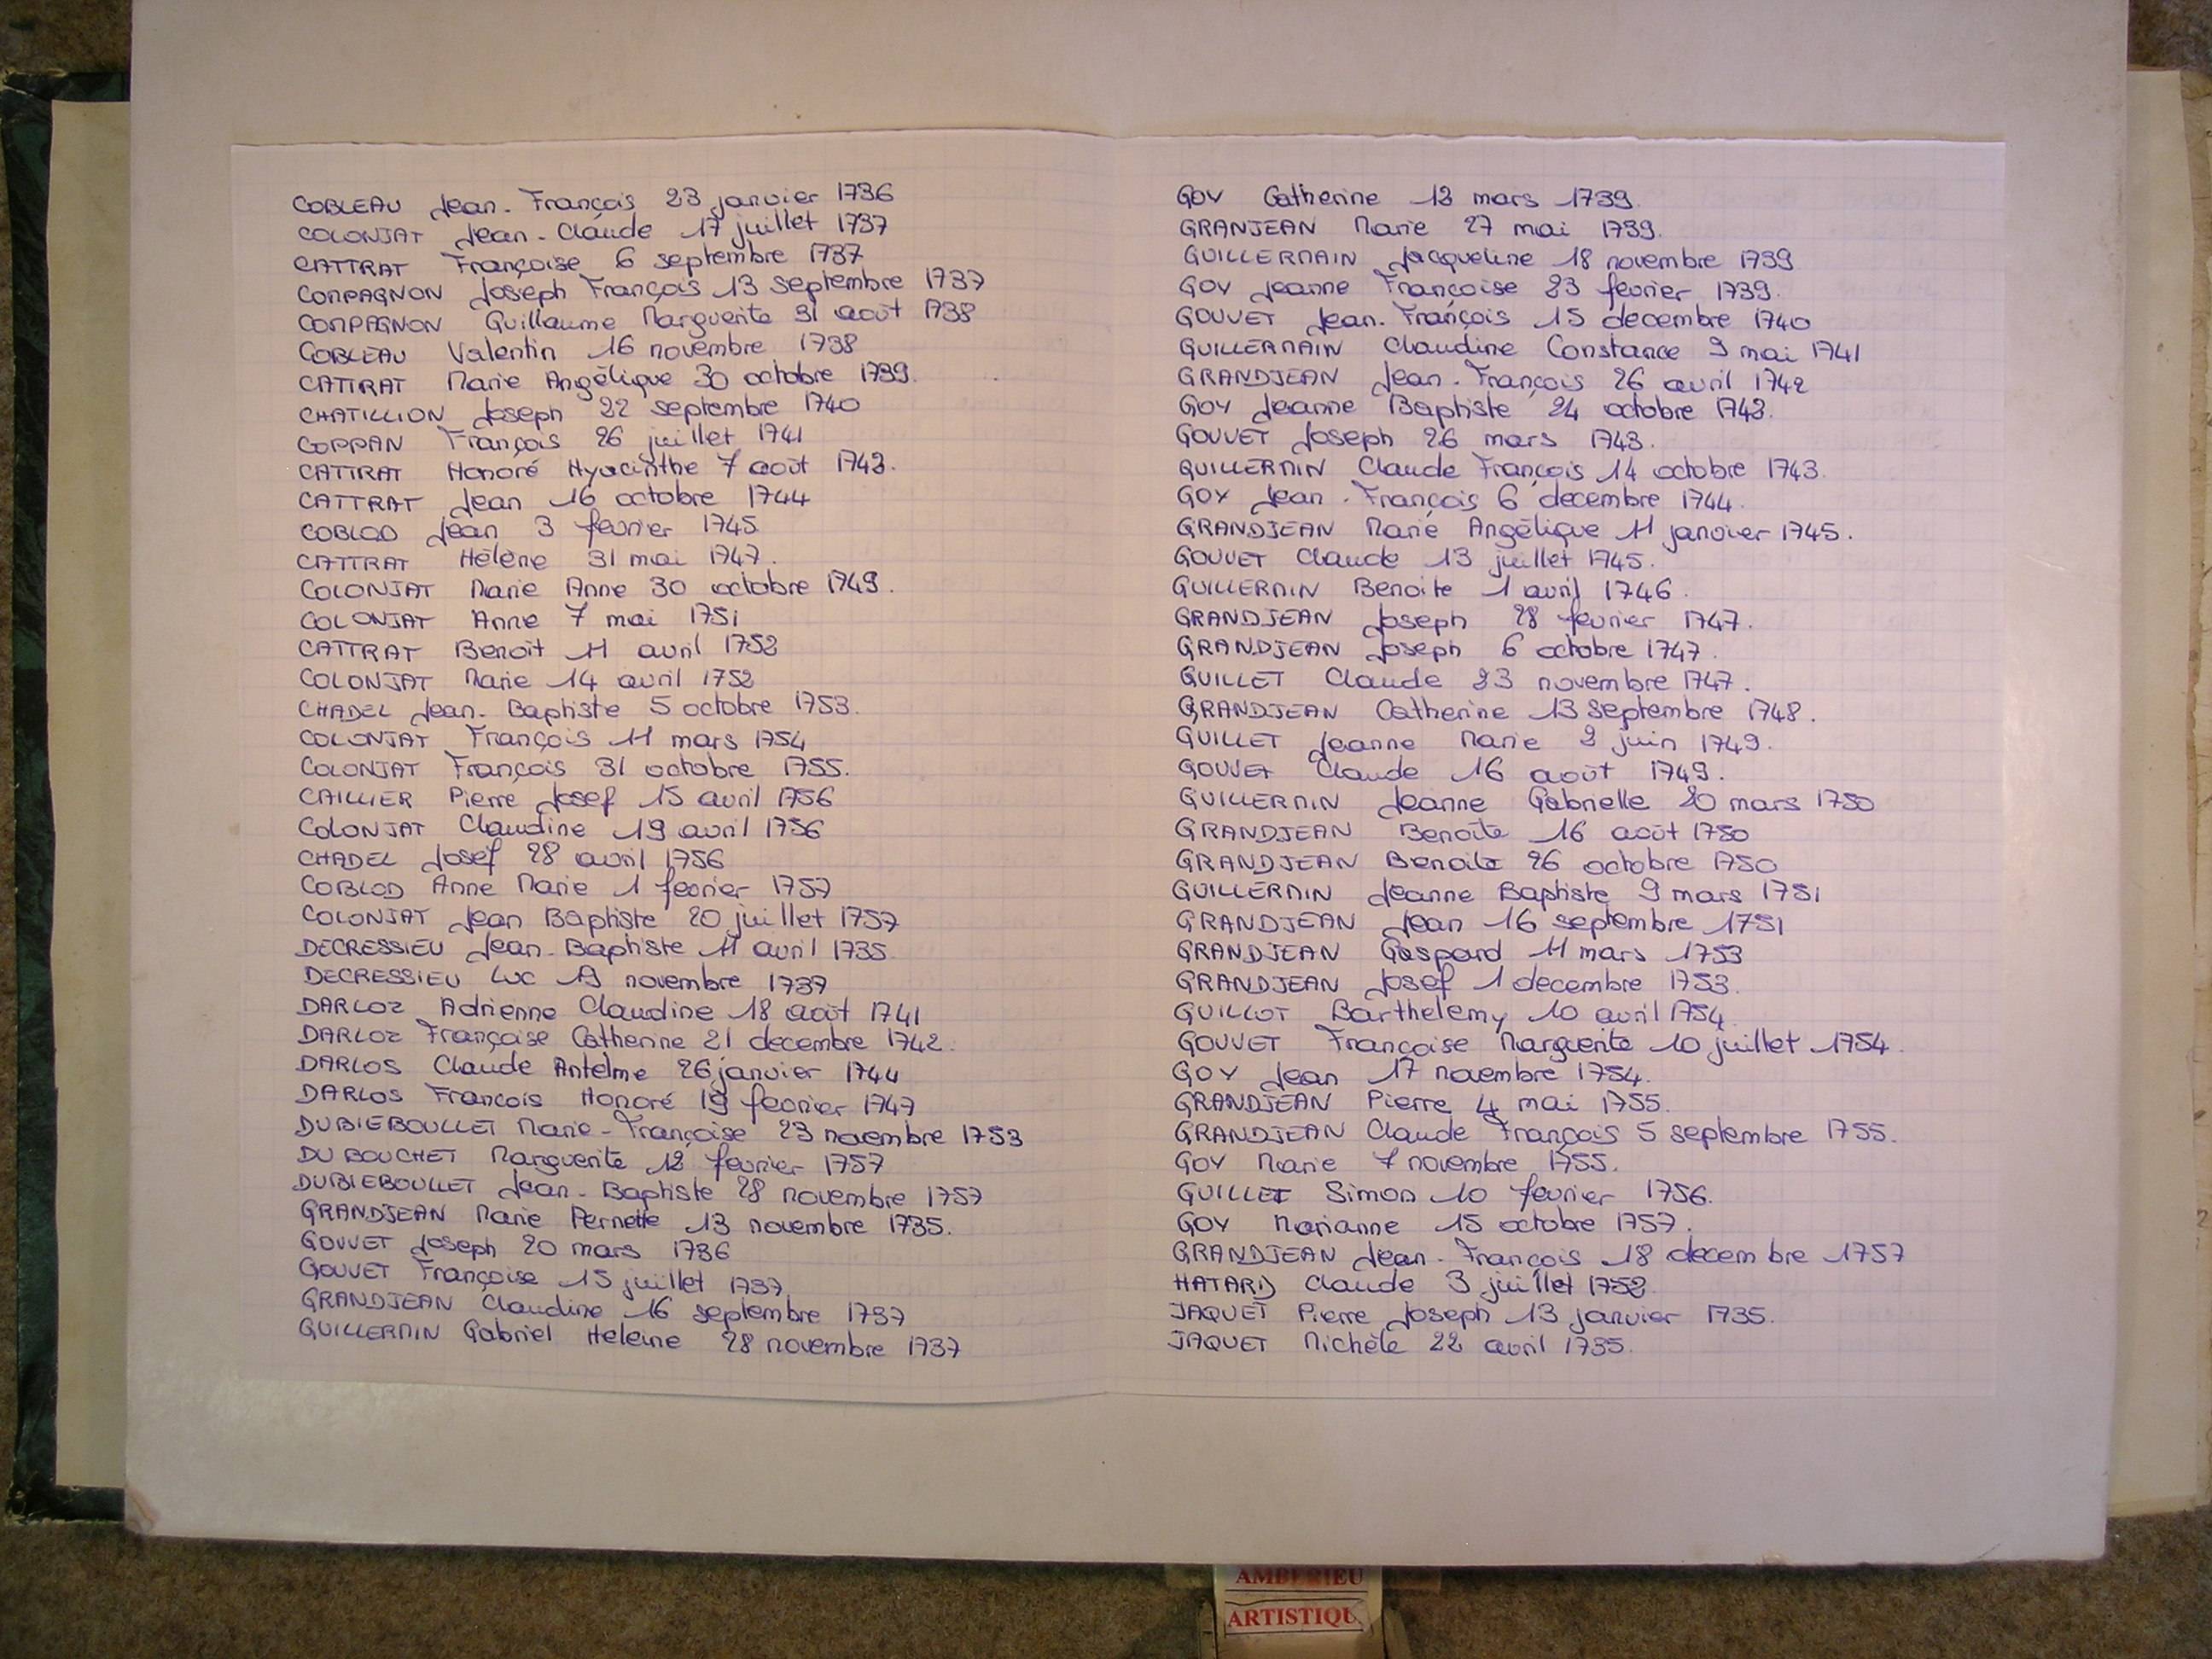 COBLEAU Jean-François 23 janvier 1736
COLONJAT Jean-Claude 17 juillet 1737
CATTRAT Françoise 6 septembre 1737
COMPAGNON Joseph François 13 septembre 1737
COMPAGNON Guillaume Marguerite 31 août 1738
COBLEAU Valentin 16 novembre 1738
CATTRAT Marie Angélique 30 octobre 1739.
CHATILLION Joseph 22 septembre 1740
COPPAN François 26 juillet 1741
CATTRAT Honoré Hyacinthe 7 août 1743.
CATTRAT Jean 16 octobre 1744
COBLOD Jean 3 fevrier 1745
CATTRAT Hélène 31 mai 1747.
COLONJAT Marie Anne 30 octobre 1749.
COLONJAT Anne 7 mai 1751
CATTRAT Benoît 11 avril 1752
COLONJAT Marie 14 avril 1752
CHADEL Jean-Baptiste 5 octobre 1753.
COLONJAT François 11 mars 1754
COLONJAT François 31 octobre 1755.
CAILLIER Pierre Josef 15 avril 1756
COLONJAT Claudine 19 avril 1756
CHADEL Josef 28 avril 1756
COBLOD Anne Marie 1 fevrier 1757
COLONJAT Jean Baptiste 20 juillet 1757
DECRESSIEU Jean-Baptiste 11 avril 1735
DECRESSIEU Luc 19 novembre 1737
DARLOZ Adrienne Claudine 18 août 1741
DARLOZ Françoise Catherine 21 decembre 1742.
DARLOS Claude Antelme 26 janvier 1744
DARLOS Francois Honoré 19 fevrier 1747
DUBIEBOULLET Marie-Françoise 23 novembre 1753
DU BOUCHET Marguerite 12 fevrier 1757
DUBIEBOULLET Jean-Baptiste 28 novembre 1757
GRANDJEAN Marie Pernette 13 novembre 1735.
GOUVET Joseph 20 mars 1736
GOUVET Françoise 15 juillet 1737
GRANDJEAN Claudine 16 septembre 1737
GUILLERMIN Gabriel Heleine 28 novembre 1737
GOY Catherine 12 mars 1739.
GRANJEAN Marie 27 mai 1739.
GUILLERMAIN Jacqueline 18 novembre 1739
GOY Jeanne Françoise 23 fevrier 1739.
GOUVET Jean-François 15 decembre 1740
GUILLERMAIN Claudine Constance 9 mai 1741
GRANDJEAN Jean-François 26 avril 1742
GOY Jeanne Baptiste 24 octobre 1742.
GOUVET Joseph 26 mars 1743.
GUILLERMIN Claude François 14 octobre 1743.
GOY Jean-François 6 decembre 1744.
GRANDJEAN Marie Angélique 11 janvier 1745.
GOUVET Claude 13 juillet 1745.
GUILLERMIN Benoite 1 avril 1746.
GRANDJEAN Joseph 28 fevrier 1747.
GRANDJEAN Joseph 6 octobre 1747.
GUILLET Claude 23 novembre 1747.
GRANDJEAN Catherine 13 septembre 1748.
GUILLET Jeanne Marie 2 juin 1749.
GOUVET Claude 16 août 1749.
GUILLERMIN Jeanne Gabrielle 20 mars 1750
GRANDJEAN Benoîte 16 août 1750
GRANDJEAN Benoite 26 octobre 1750
GUILLERMIN Jeanne Baptiste 9 mars 1751
GRANDJEAN Jean 16 septembre 1751
GRANDJEAN Gaspard 11 mars 1753
GRANDJEAN Josef 1 decembre 1753.
GUILLOT Barthelemy 10 avril 1754.
GOUVET Françoise Marguerite 10 juillet 1754.
GOY Jean 17 novembre 1754.
GRANDJEAN Pierre 4 mai 1755.
GRANDJEAN Claude François 5 septembre 1755.
GOY Marie 7 novembre 1755.
GUILLET Simon 10 fevrier 1756.
GOY Marianne 15 octobre 1757.
GRANDJEAN Jean-François 18 decembre 1757
HATARD Claude 3 juillet 1752.
JAQUET Pierre Joseph 13 janvier 1735.
JAQUET Michèle 22 avril 1735.
AMBERIEU
ARTISTIQU